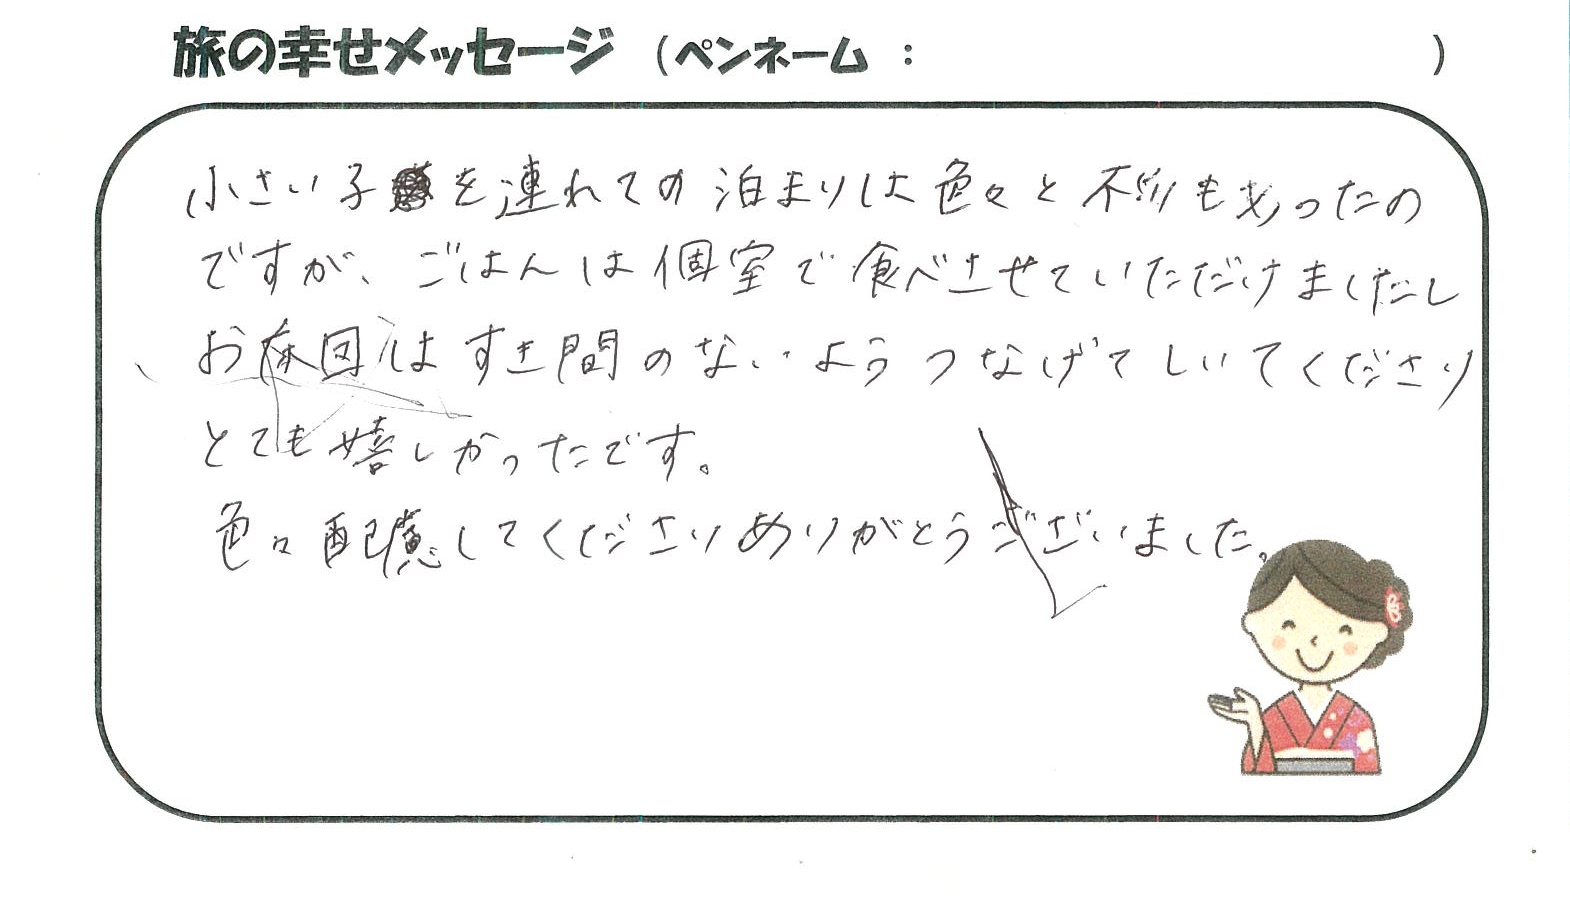 旅の幸せメッセージ （ペンネーム：　　　　）
小さい子を連れての泊まりは色々ともあったの
ですが、ごはんは個室で食べさせていただけましたし
、お布団はすき間のないようつなげてしいてくださり
とても嬉しかったです。
色々配慮してくださりありがとうございました。